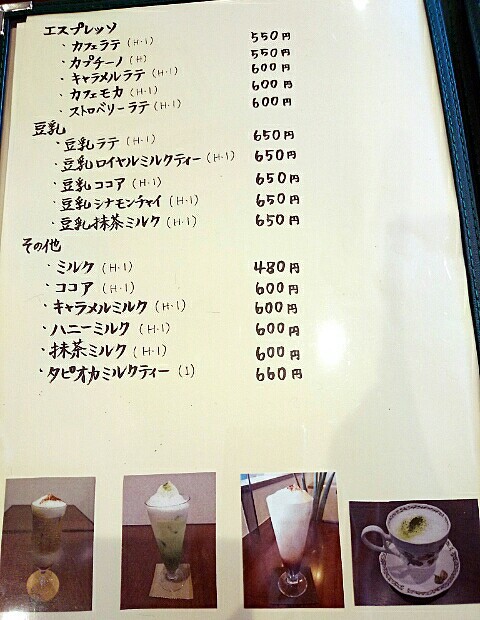 エスプレッソ
・カフェラテ (H・I) 550円
・カプチーノ (H) 550円
・キャラメルラテ (H・I) 600円
・カフェモカ (H・I) 600円
・ストロベリーラテ (H・I) 600円
豆乳
・豆乳ラテ (H・I) 650円
・豆乳ロイヤルミルクティー (H・I) 650円
・豆乳ココア (H・I) 650円
・豆乳シナモンチャイ (H・I) 650円
・豆乳抹茶ミルク (H・I) 650円
その他
・ミルク (H・I) 480円
・ココア (H・I) 600円
・キャラメルミルク (H・I) 600円
・ハニーミルク (H・I) 600円
・抹茶ミルク (H・I) 600円
・タピオカミルクティー (I) 660円